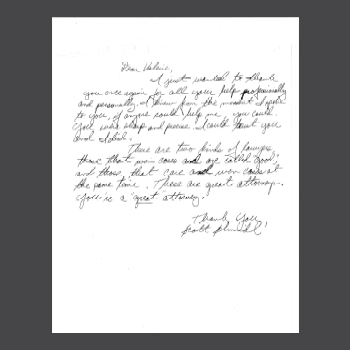 Dear Valerie,
I just wanted to thank
you once again for all your help professionally
and personally. I knew from the moment I spoke
to you, if anyone could help me, you could.
You were sharp and precise. I could trust you
and I did.
There are two kinds of lawyers,
those that win cases and are called "good,"
and those that care and win cases at
the same time. These are great attorneys.
You're a "great attorney."
Thank You
Scott